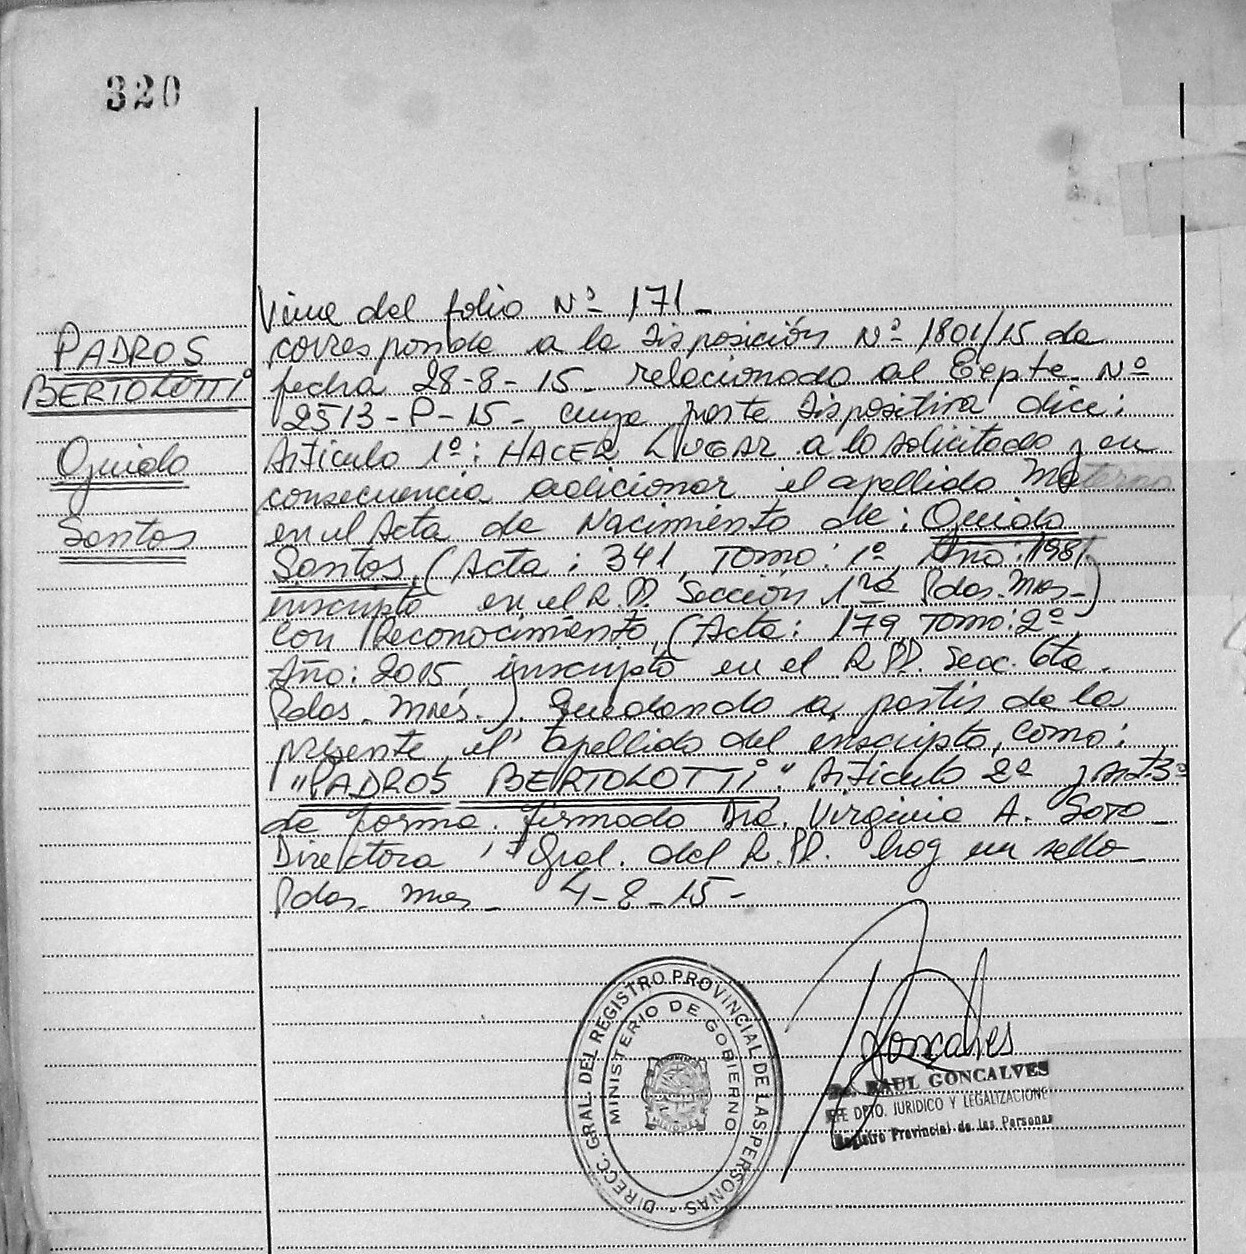 320
Viene del folio Nº 171_
PADROS
BERTOLOTTI
Guido
Santos
corresponde a la Disposición Nº 1801/15 de
fecha 28-8-15_ relacionado al Expte. Nº
2513-P-15_ cuya parte dispositiva dice:
Artículo 1º: HACER LUGAR a lo solicitado y en
consecuencia adicionar el apellido Materno
en el Acta de Nacimiento de: Guido
Santos, (Acta: 341, Tomo: 1º, Año: 1981,
inscripto en el R.PP. Sección 1ra Pdas. Mnes_)
con Reconocimiento, (Acta: 179, Tomo: 2º,
Año: 2015, inscripto en el R.PP. Secc. 6ta.
Pdas. Mnes.). Quedando a partir de la
presente, el apellido del inscripto, como:
"PADROS BERTOLOTTI". Artículo 2º y Art.3º
de forma. Firmado Dra. Virginia A. Soto_
Directora Gral. del R.PP. hay un sello_
Pdas. Mnes_ 4-8-15-
DIRECC. GRAL. DEL REGISTRO PROVINCIAL DE LAS PERSONAS
MINISTERIO DE GOBIERNO
MISIONES
Goncalves
Dr. RAUL GONCALVES
JEFE DPTO. JURIDICO Y LEGALIZACIONE
Registro Provincial de las Personas